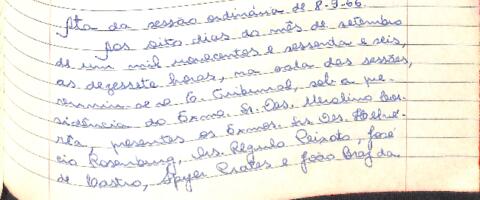 Ata da sessão ordinária de 8-9-66.
Aos oito dias do mês de setembro
de um mil novecentos e sessenta e seis,
as dezessete horas, na sala das sessões,
reuniu-se o E. Tribunal, sob a pre-
sidência do Exmo. Sr. Des. Merolino Cor-
rêa, presentes os Exmos. Srs. Des. Helvé-
cio Rosenburg, Drs. Régulo Peixoto, José
de Castro, Spyer Prates e João Braz da